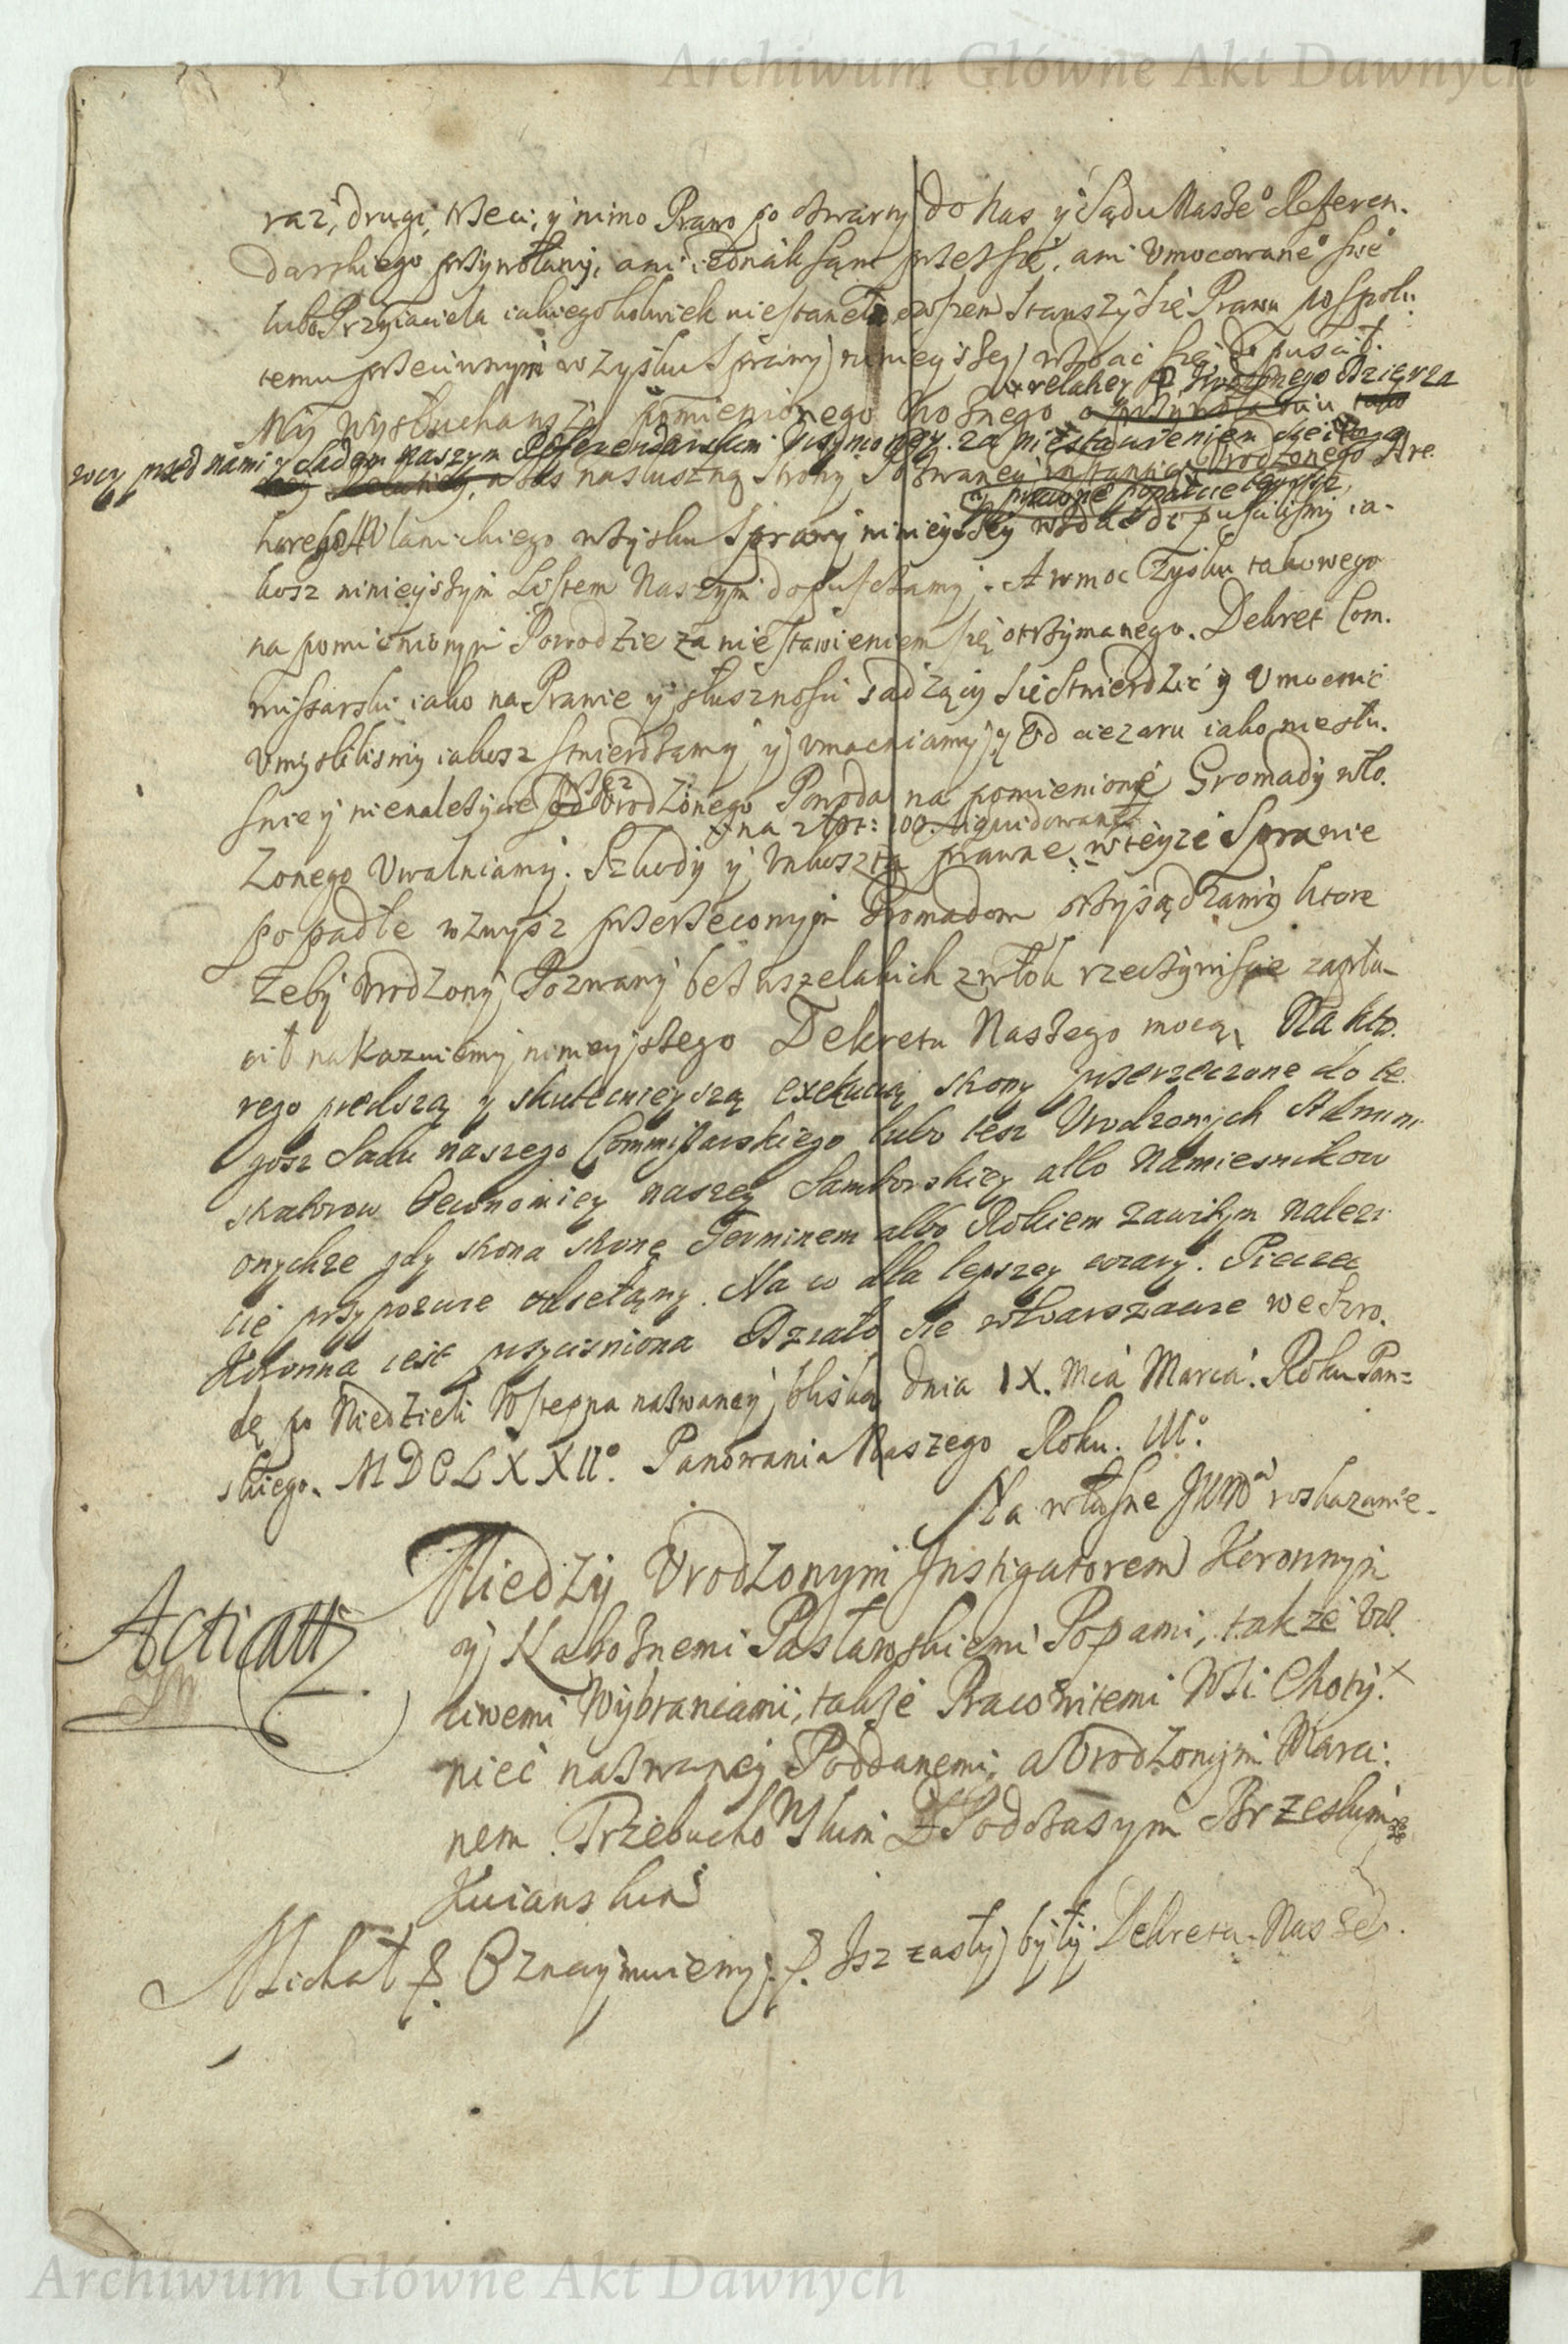 Archiwum Główne Akt Dawnych
raz, drugi, trzeci, y mimo Prawo po czwarty do Nas y Sądu Naszeo Referen.
darskiego przywołany, ani iednak sam przez się, ani Umocowaneo sweo
lubo Przyiaciela iakiegokolwiek nie stanął, owszem stawszy się Prawu pospoli.
temu przeciwnym w zysku Sprawy ninieyszey wzdać się dopuścił.
relacyey Urodzonego Dzierza
My wysłuchawszy pomienionego Woznego o przywołaniu
przed nami y Sądem naszym Referendarskim za niestawieniem się
a zas na słuszną Strony Pozwaney instantią Urodzonego Are.
prawne popadcie
w zysku Sprawy ninieyszey wzdać dopuscilismy ia.
kosz ninieyszym Listem Naszym dopusczamy. A w moc Zysku takowego
na pomienionym Powodzie za nie stawieniem się otrzymanego. Dekret Com.
missarski iako na Prawie y słusznosci sadzący się stwierdzić y Umocnić
Umyslilismy iakosz stwierdzamy y umacniamy y Od ciezaru iako niesłu.
sznie y nienalezycie Urodzonego Powoda na pomienione Gromady wło.
na złot: 100. liquidowane
zonego Uwalniamy. Szkody y Unkoszta prawne w teyze Sprawie
popadłe wzwysz przerzeconym Gromadom przysądzamy ktore
Zeby Urodzony Pozwany bez wszelakich zwłok rzeczywiscie zapła-
cił nakazuiemy ninieyszego Dekretu Naszego mocą. Na kto.
rego prędszą y skutecznieyszą exekucią strony przerzeczone do te.
gosz Sadu naszego Commissarskiego lubo tesz Urodzonych Admini
stratorow Oeconomiey naszey Samborskiey albo Namiesnikow
onychze gdy strona stronę Terminem albo Rokiem zawitym nalezi
cie przypozwie odsełamy. Na co dla lepszey wiary. Pieczęć
Koronna iest przycisniona Działo sie w Warszawie we Szro.
dę po Niedzieli Wstępna nazwaney bliską dnia IX. Mca Marca. Roku Pan=
skiego. MDCLXXIIo. Panowania Naszego Roku. IIIo.
Na własne JKMci roskazanie.
Miedzy Urodzonym Instigatorem Koronnym
Acticatt
y Naboznemi Pasławskiemi Popami, takze Ucz.
ciwemi Wybrancami, takze Pracowitemi Wsi Choty.
niec nazwaney Poddanemi, a Urodzonym Marci:
nem Trzebuchowskim Podczasym Brzeskim
Kuiawskim
Michał &. Oznaymuiemy &. Isz zaszły były Dekreta Nasze
Archiwum Główne Akt Dawnych